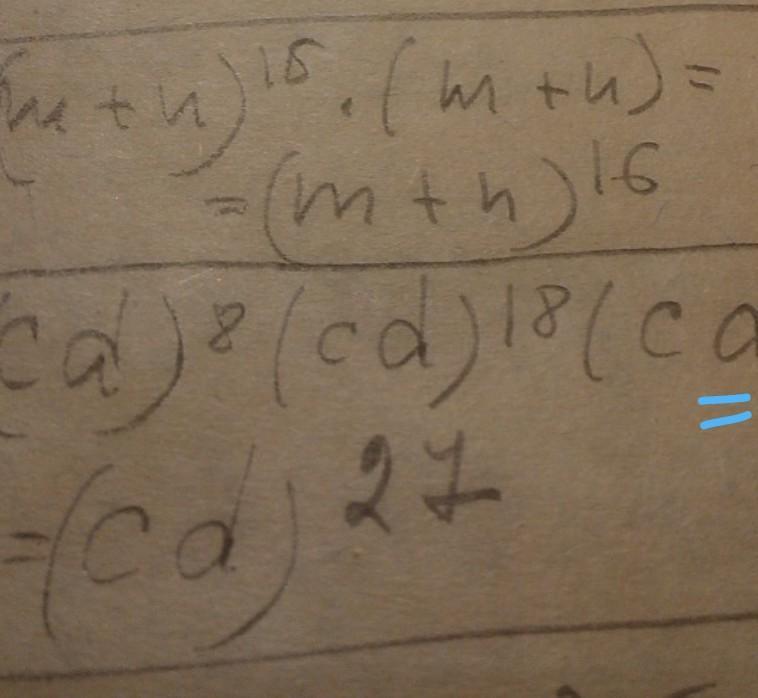 (m + n)¹⁵ · (m + n) =
= (m + n)¹⁶
(cd)⁸ (cd)¹⁸ (c
=
= (cd)²⁷